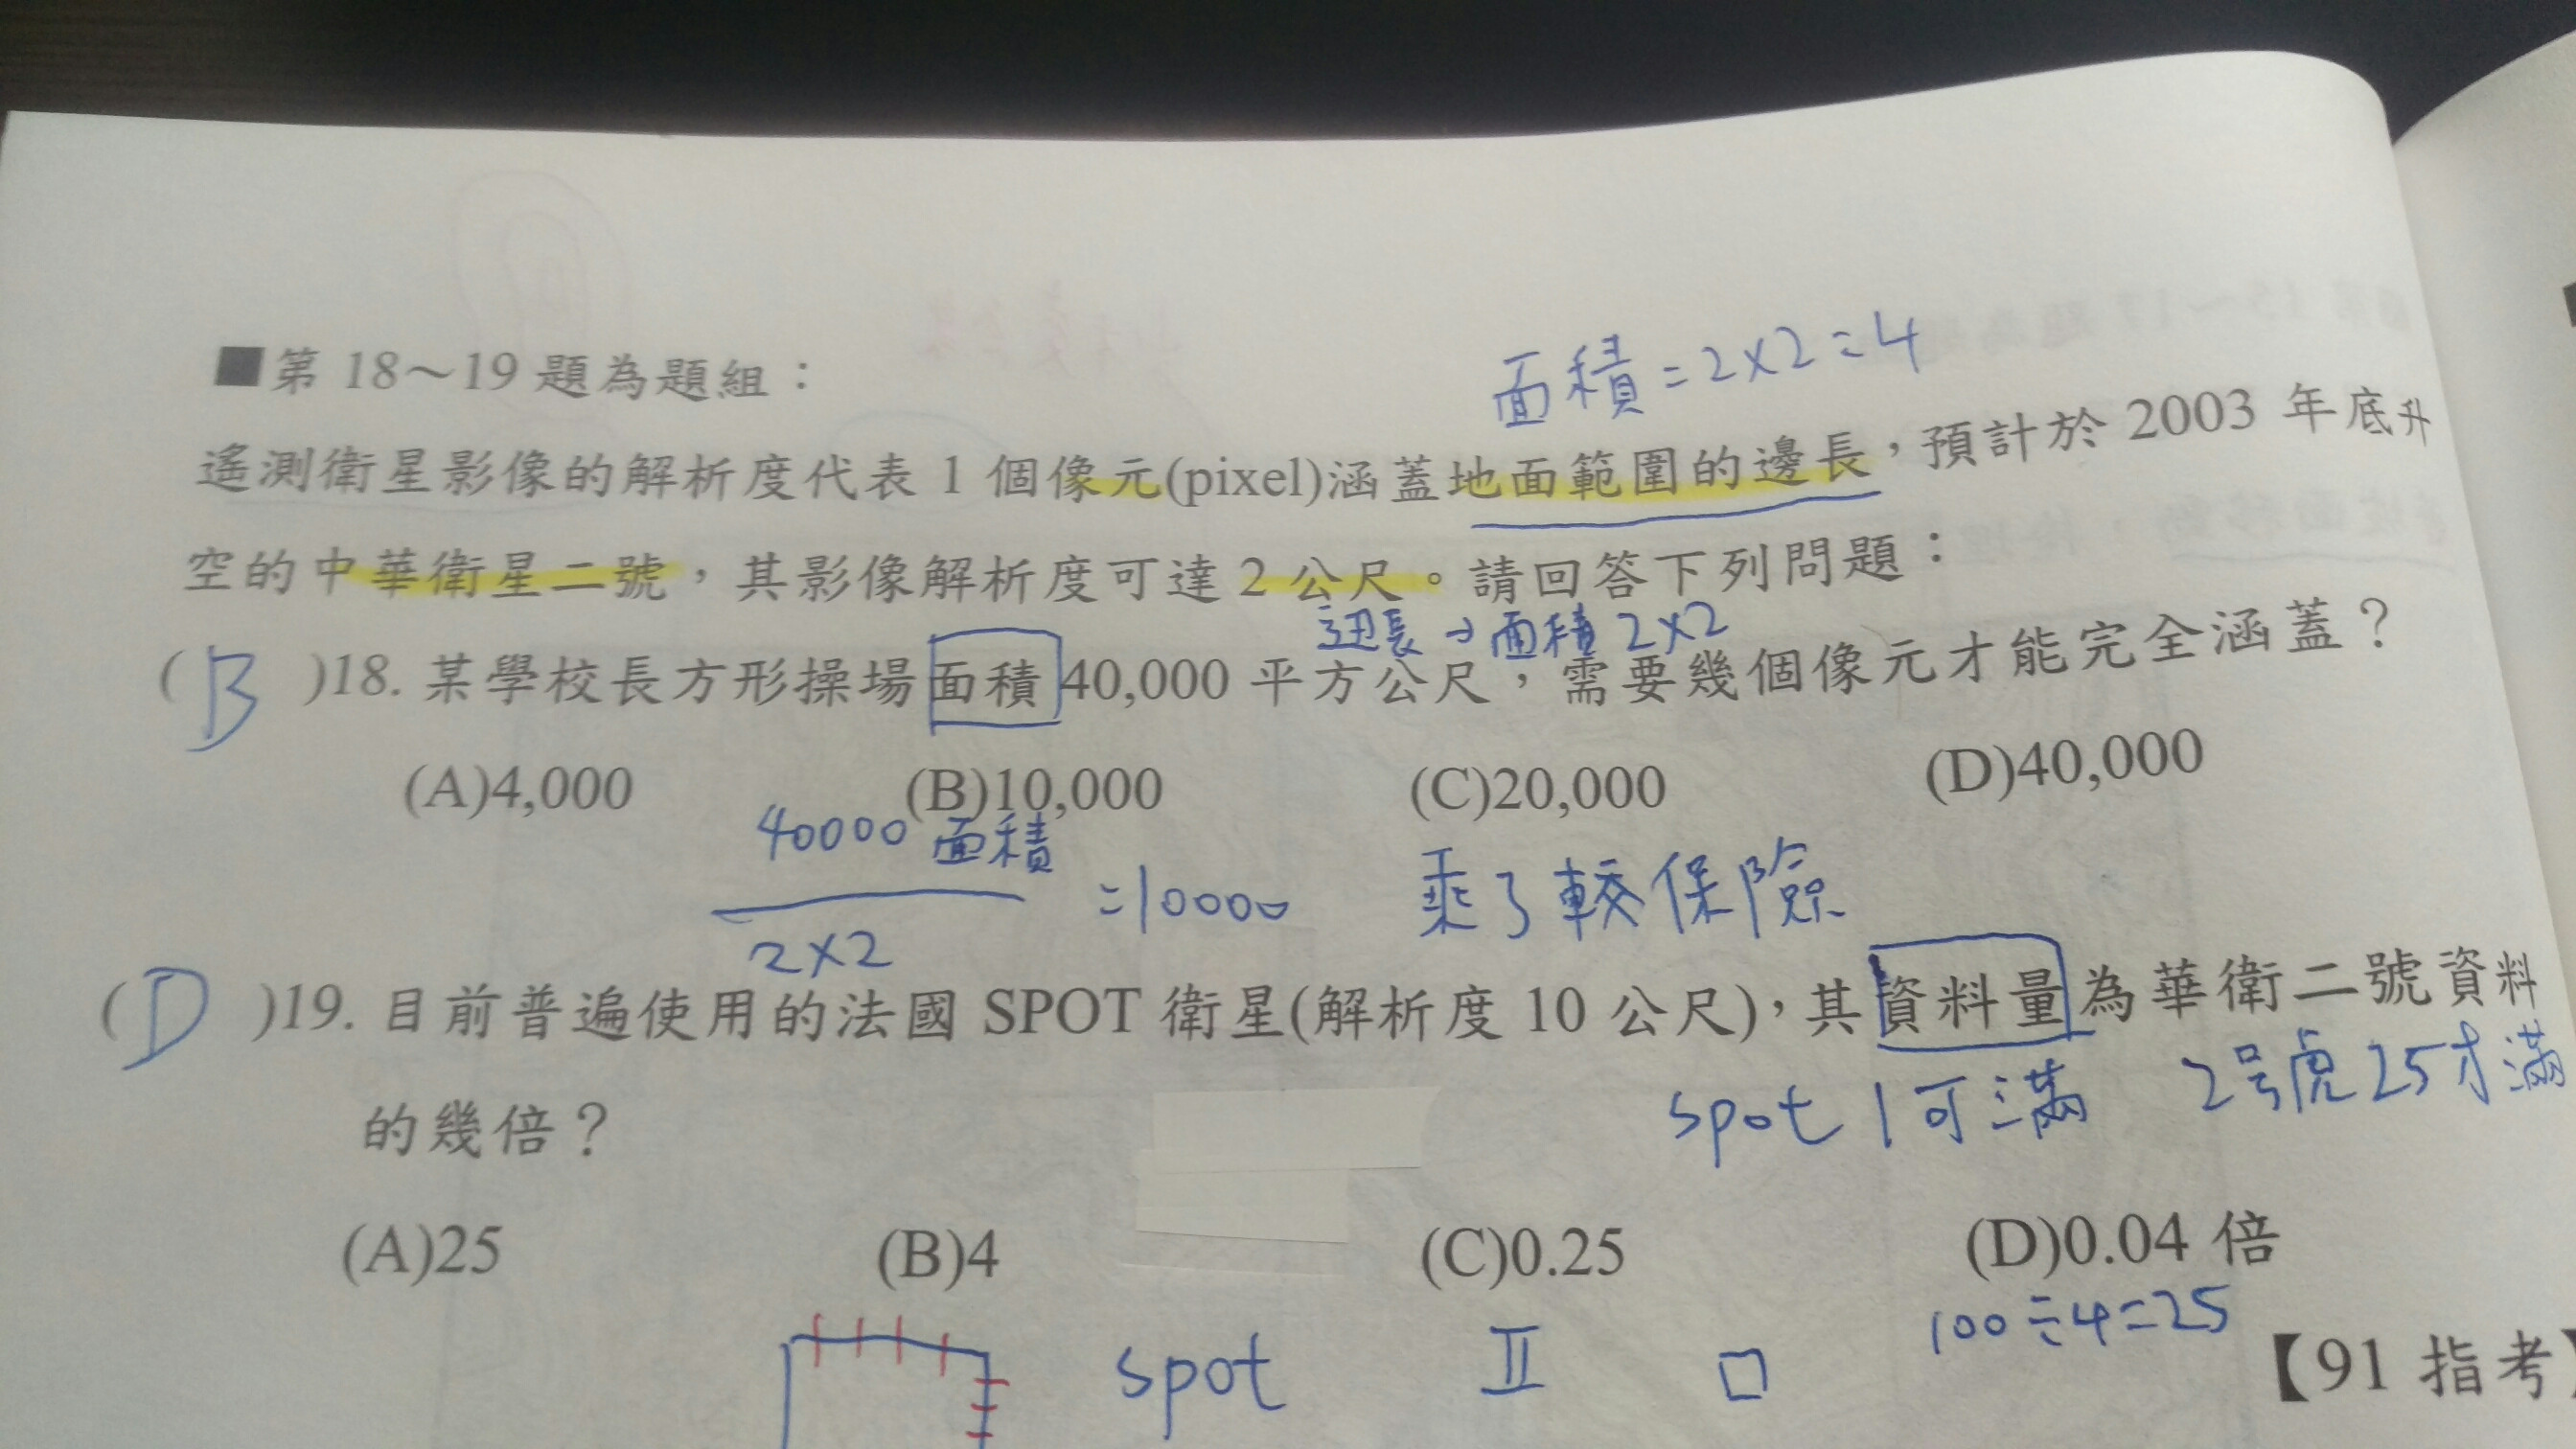 面積=2×2=4
■第 18～19 題為題組：
遙測衛星影像的解析度代表 1 個像元(pixel)涵蓋地面範圍的邊長，預計於 2003 年底升
空的中華衛星二號，其影像解析度可達 2 公尺。請回答下列問題：
边長→面積 2×2
( B )18. 某學校長方形操場面積 40,000 平方公尺，需要幾個像元才能完全涵蓋？
(A)4,000 (B)10,000 (C)20,000 (D)40,000
40000 面積
=10000 乘了較保險
2×2
( D )19. 目前普遍使用的法國 SPOT 衛星(解析度 10 公尺)，其資料量為華衛二號資料
spot 1可滿 2号虎25才滿
的幾倍？
(A)25 (B)4 (C)0.25 (D)0.04 倍
100÷4=25
spot II
【91 指考】